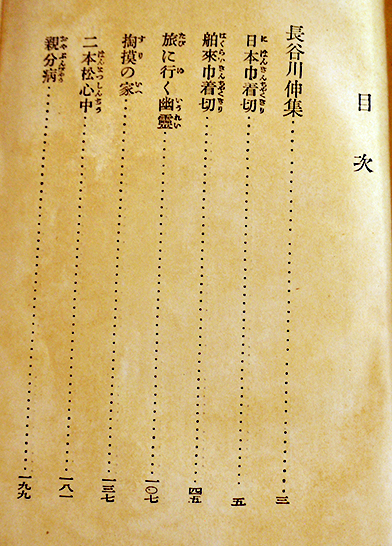 目次
長谷川伸集……三
日本巾着切……五
舶來巾着切……四五
旅に行く幽靈……一〇七
掏摸の家……一三七
二本松心中……一八一
親分病……一九九